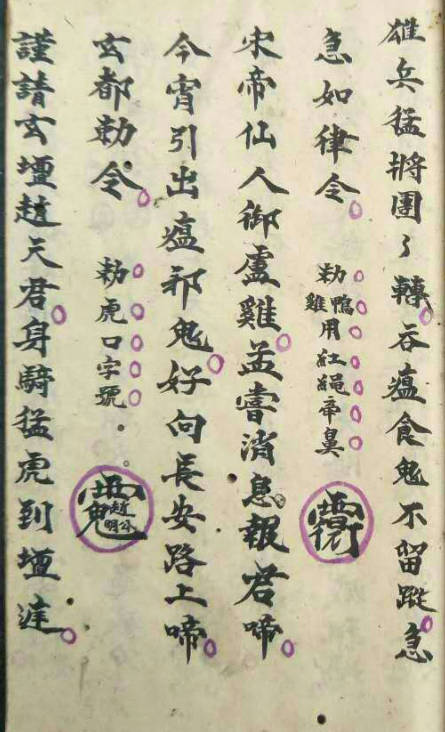 雄兵猛將團々轉。吞瘟食鬼不留蹤。急
急如律令。
勅鴨雞用紅繩帝鼻
宋帝仙人御盧雞。孟嘗消息報君啼。
今宵引出瘟邪鬼。好向長安路上啼。
玄都勅令。
勅虎口字號。
趙公明
謹請玄壇趙天君。身騎猛虎到壇